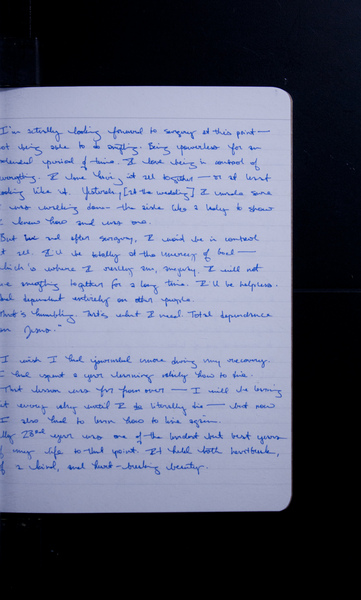 I'm actually looking forward to surgery at this point—
not being able to do anything. Being powerless for an
extended period of time. I love being in control of
everything. I love having it all together — or at least
looking like it. Yesterday, [at the wedding] I made sure
I was walking down the aisle like a lady to show
I knew how and was one.
But and after surgery, I won't be in control
at all. I'll be totally at the mercy of God —
which is where I really am, anyway. I will not
be together for a long time. I'll be helpless.
And dependent entirely on other people.
That's humbling. That's what I need. Total dependence
on Jesus."
I wish I had journaled more during my recovery.
I had spent a year learning how to die.
That lesson was far from over — I will be learning
it every day until I do literally die — but now
I also had to learn how to live again.
My 23rd year was one of the hardest but best years
of my life to that point. It held both heartbreak,
of a kind, and heart-breaking beauty.